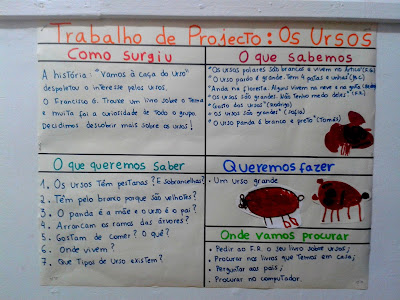 Trabalho de Projecto: Os Ursos
Como surgiu
A história: "Vamos à caça do urso"
despoletou o interesse pelos ursos.
O Francisco G. Trouxe um livro sobre o Tema
e muita foi a curiosidade de todo o grupo.
Decidimos descobrir mais sobre os ursos!
O que sabemos
"Os ursos polares são brancos e vivem no Ártico"
"O urso pardo é grande. Tem 4 patas e unhas"
"Anda na floresta. Alguns vivem na neve e na
"Os ursos são grandes. Não tenho medo deles"
"Gosto dos ursos" (Rodrigo)
"Os ursos são grandes" (Sofia)
"O urso panda é branco e preto" (Tomás)
O que queremos saber
1. Os ursos têm pestanas? E sobrancelhas?
2. Têm pelo branco porque são velhotes?
3. O panda é a mãe e o urso é o pai?
4. Arrancam os ramos das árvores?
5. Gostam de comer? O quê?
6. Onde vivem?
7. Que Tipos de urso existem?
Queremos fazer
- Um urso grande
Onde vamos procurar
- Pedir ao F.R. o seu livro sobre ursos;
- Procurar nos livros que Temos em casa;
- Perguntar aos pais;
- Procurar no computador.